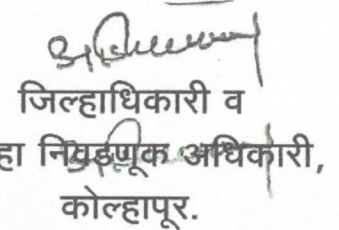 जिल्हाधिकारी व
हा निवडणूक अधिकारी,
कोल्हापूर.